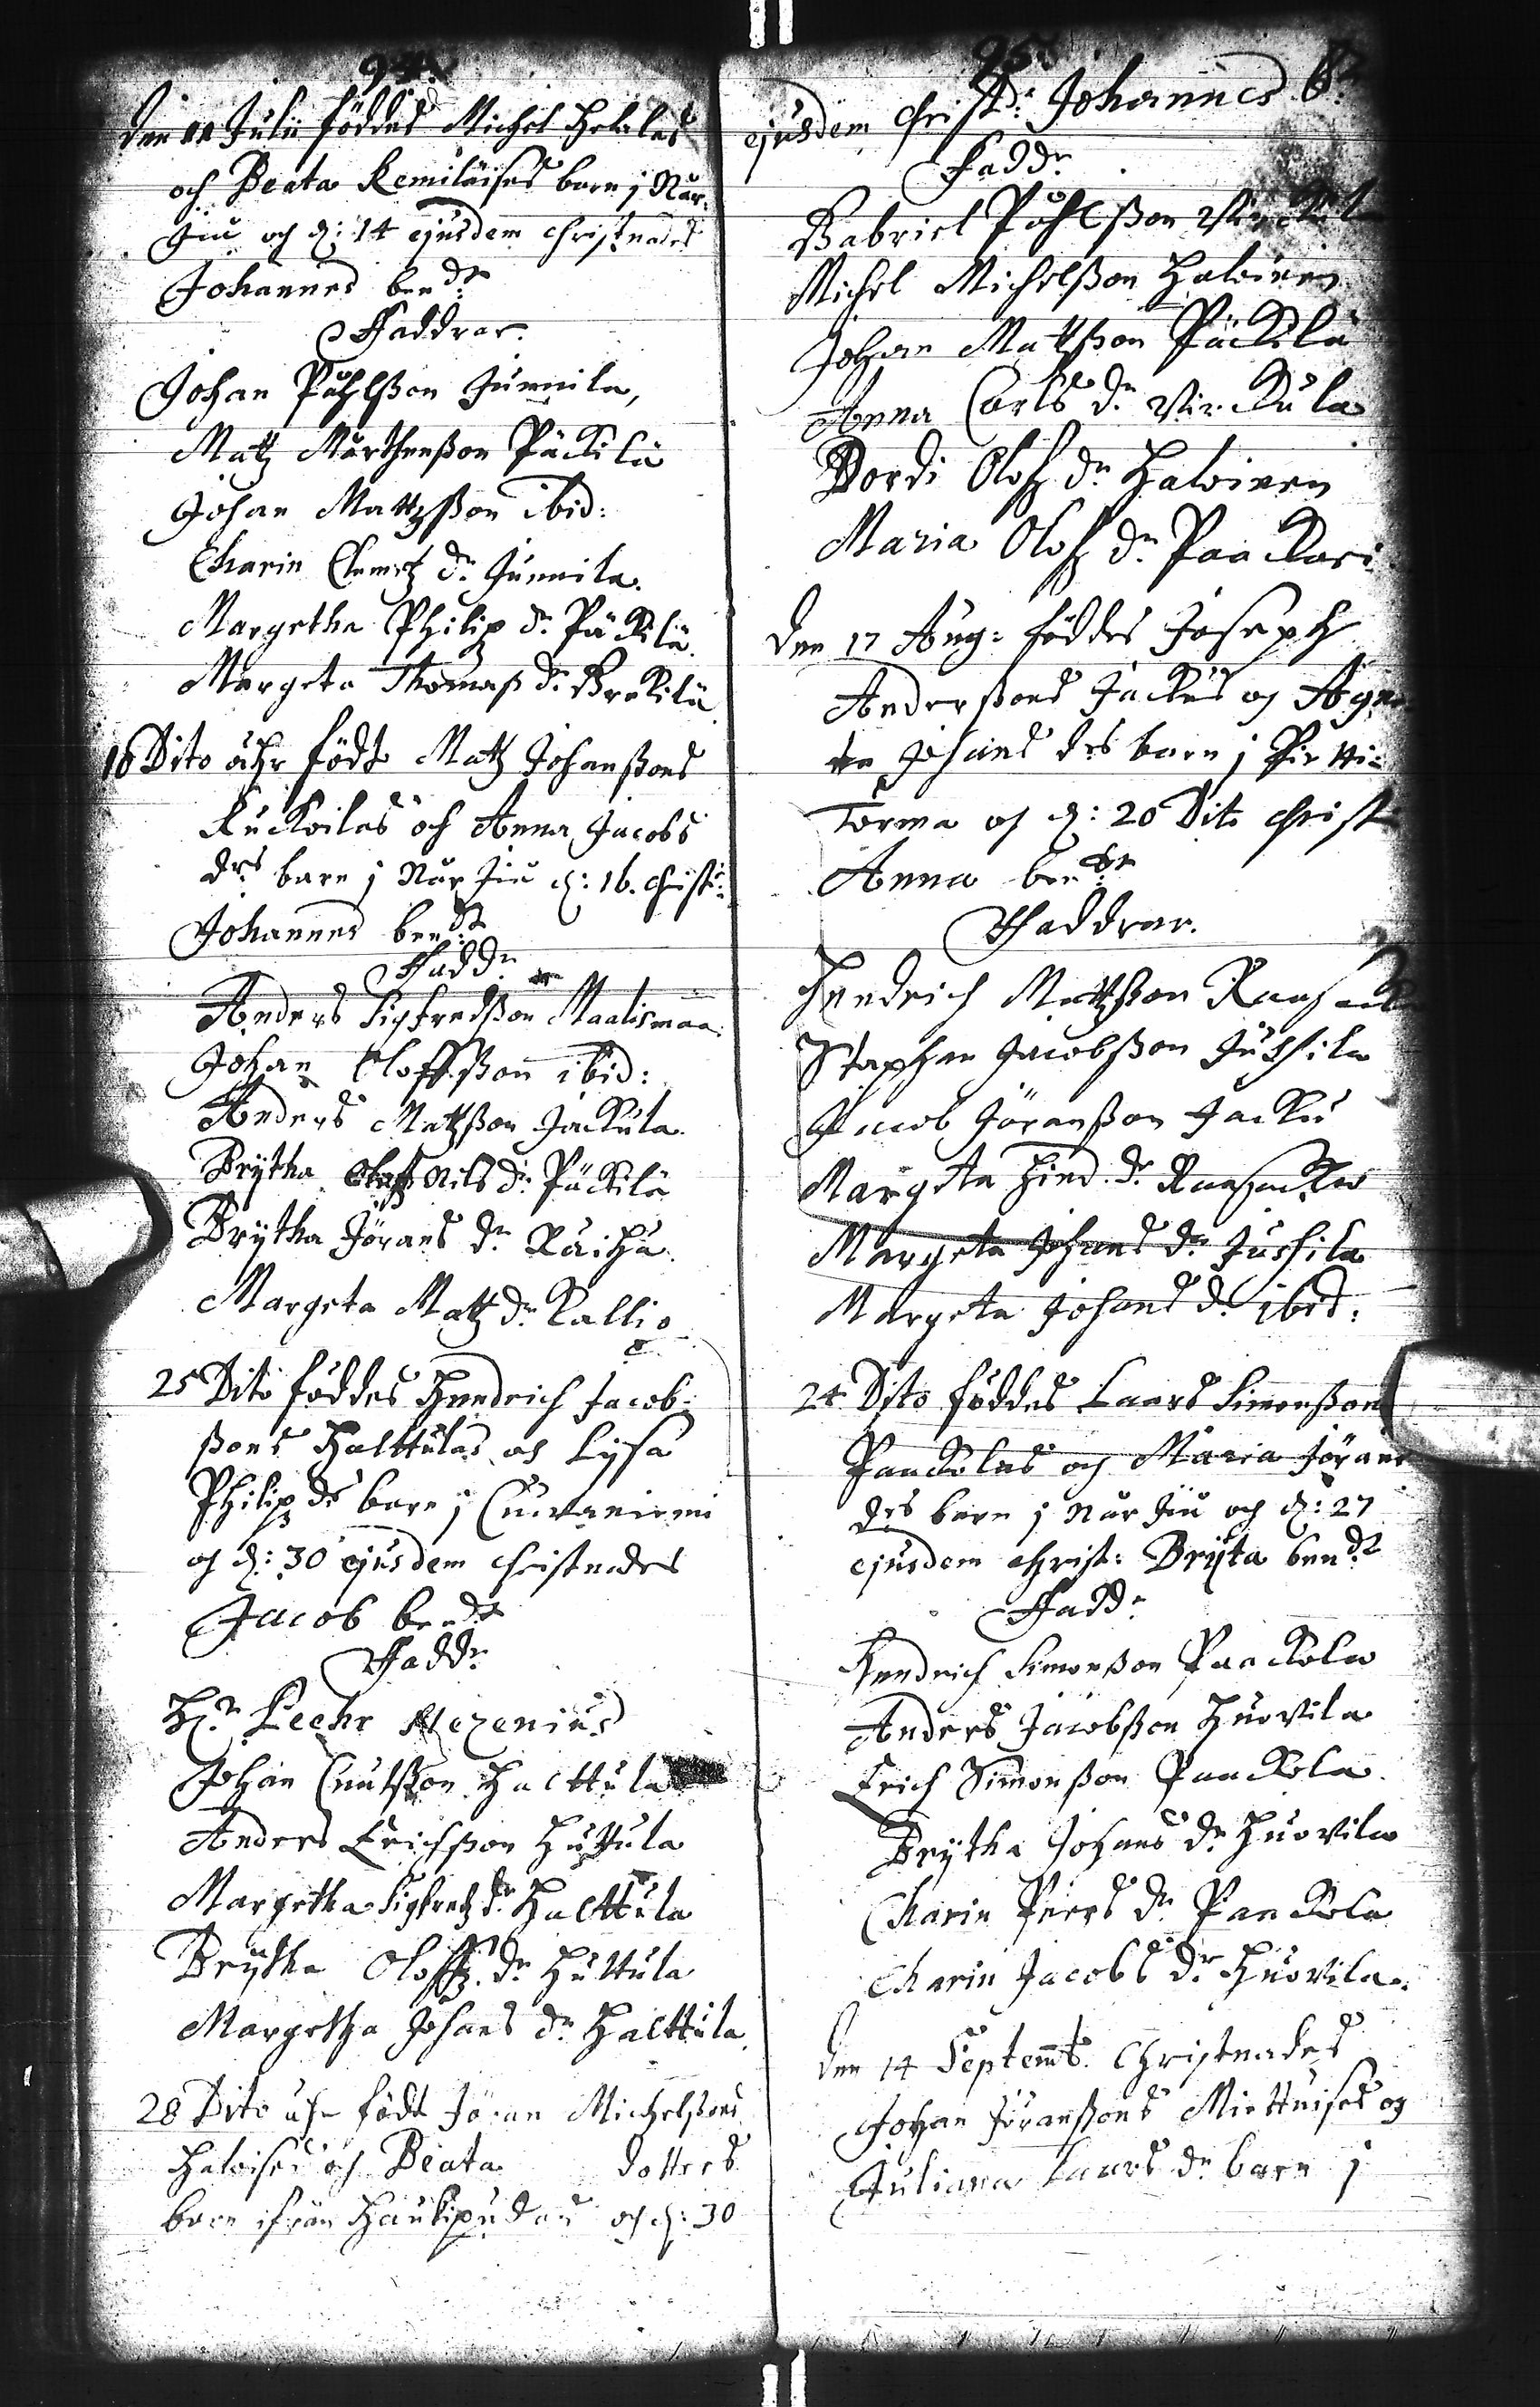 94.
den 11 Julii föddes Michel
och Beata Kemiläises barn j Nur-
Jiu och d: 14 ejusdem christnades
Johannes ben:dt
Faddrar.
Johan Påhlßon Junnila,
Matz Mårthenßon Päckilä
Johan Mattzßon ibid:
Charin Clemetz dr. Junnila.
Margetha Philip dr. Päckilä.
Margeta Thomaß dr.
16 Dito ähr födt Matz Johanßons
Kuckoilas och Anna Jacobs
drs barn j Nur Jiu d: 16. christ:
Johannes ben:dt
Fadd:r
Anders Sigfredßon Maalismaa.
Johan Oloffßon ibid:
Anders Matzßon Jackula
Brytha Nils dr. Päckilä
Brytha Jörans dr. Räihä.
Margeta Matz dr. Kallio
25 Dito föddes Hendrich Jacob-
ßons Halttulas och Lysa
Philip ds barn j Cuivaniemi
och d: 30 ejusdem christnades
Jacob ben:dt
Fadd:r
H:r Peehr Mezenius
Johan Cnutßon Halttula
Anders Erichßon Huttula
Margetha Sigfredz dr. Halttula
Brytha Oloffz. dr. Huttula
Margetha Johans dr. Halttula.
28 Dito ähr födt Jöran Michelßons
Haloises och Beata dotters
barn ifrån Haukipudas och d: 30
95.
ejusdem christ: Johannes b:
Fadd:r
Gabriel Påhlßon Virckula
Michel Michelßon Haloinen
Johan Matzßon Päckilä
Anna Carls dr. Virckula
Bordi Olofz dr. Haloinen
Maria Olofz dr. Paackari.
Den 17 Aug: föddes Joseph
Anderßons Jackus och Agne
ta Johans drs barn j Pirtti-
Torma och d: 20 Dito christ
Anna ben:dn
Faddrar.
Hendrich Mattzßon
Staphan Jacobßon Jussila
Jacob Jöranßon Jacku
Margeta Hind. dr.
Margeta Johans dr. Jussila
Margeta Johans dr. ibid:
24 Dito föddes Laars Simonßons
Paackolas och Maria Jörans
drs barn j Nur Jiu och d: 27
ejusdem christ: Bryta ben:dt
Fadd:r
Hendrich Simonßon Paackola
Anders Jacobßon Huovila
Erich Simonßon Paackola.
Brytha Johans dr. Huovila
Charin Peers dr. Paackola
Charin Jacobs dr. Huovila.
Den 14 Septemb. Christnades
Johan Jöranßons Miettuises och
Juliana Laars dr. barn j